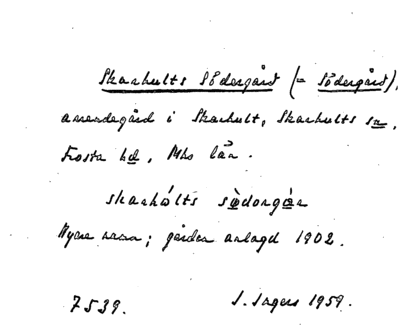 Skarhults Södergård (= Södergård),
arrendegård i Skarhult, Skarhults sn,
Frosta hd, Mhs län.
skarhúlts sø̀dorgår
Nyare namn; gården anlagd 1902.
7539. I. Ingers 1959.